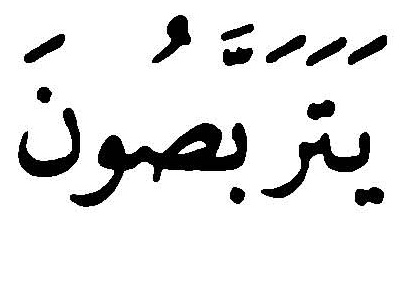 يَتَرَبَّصُونَ